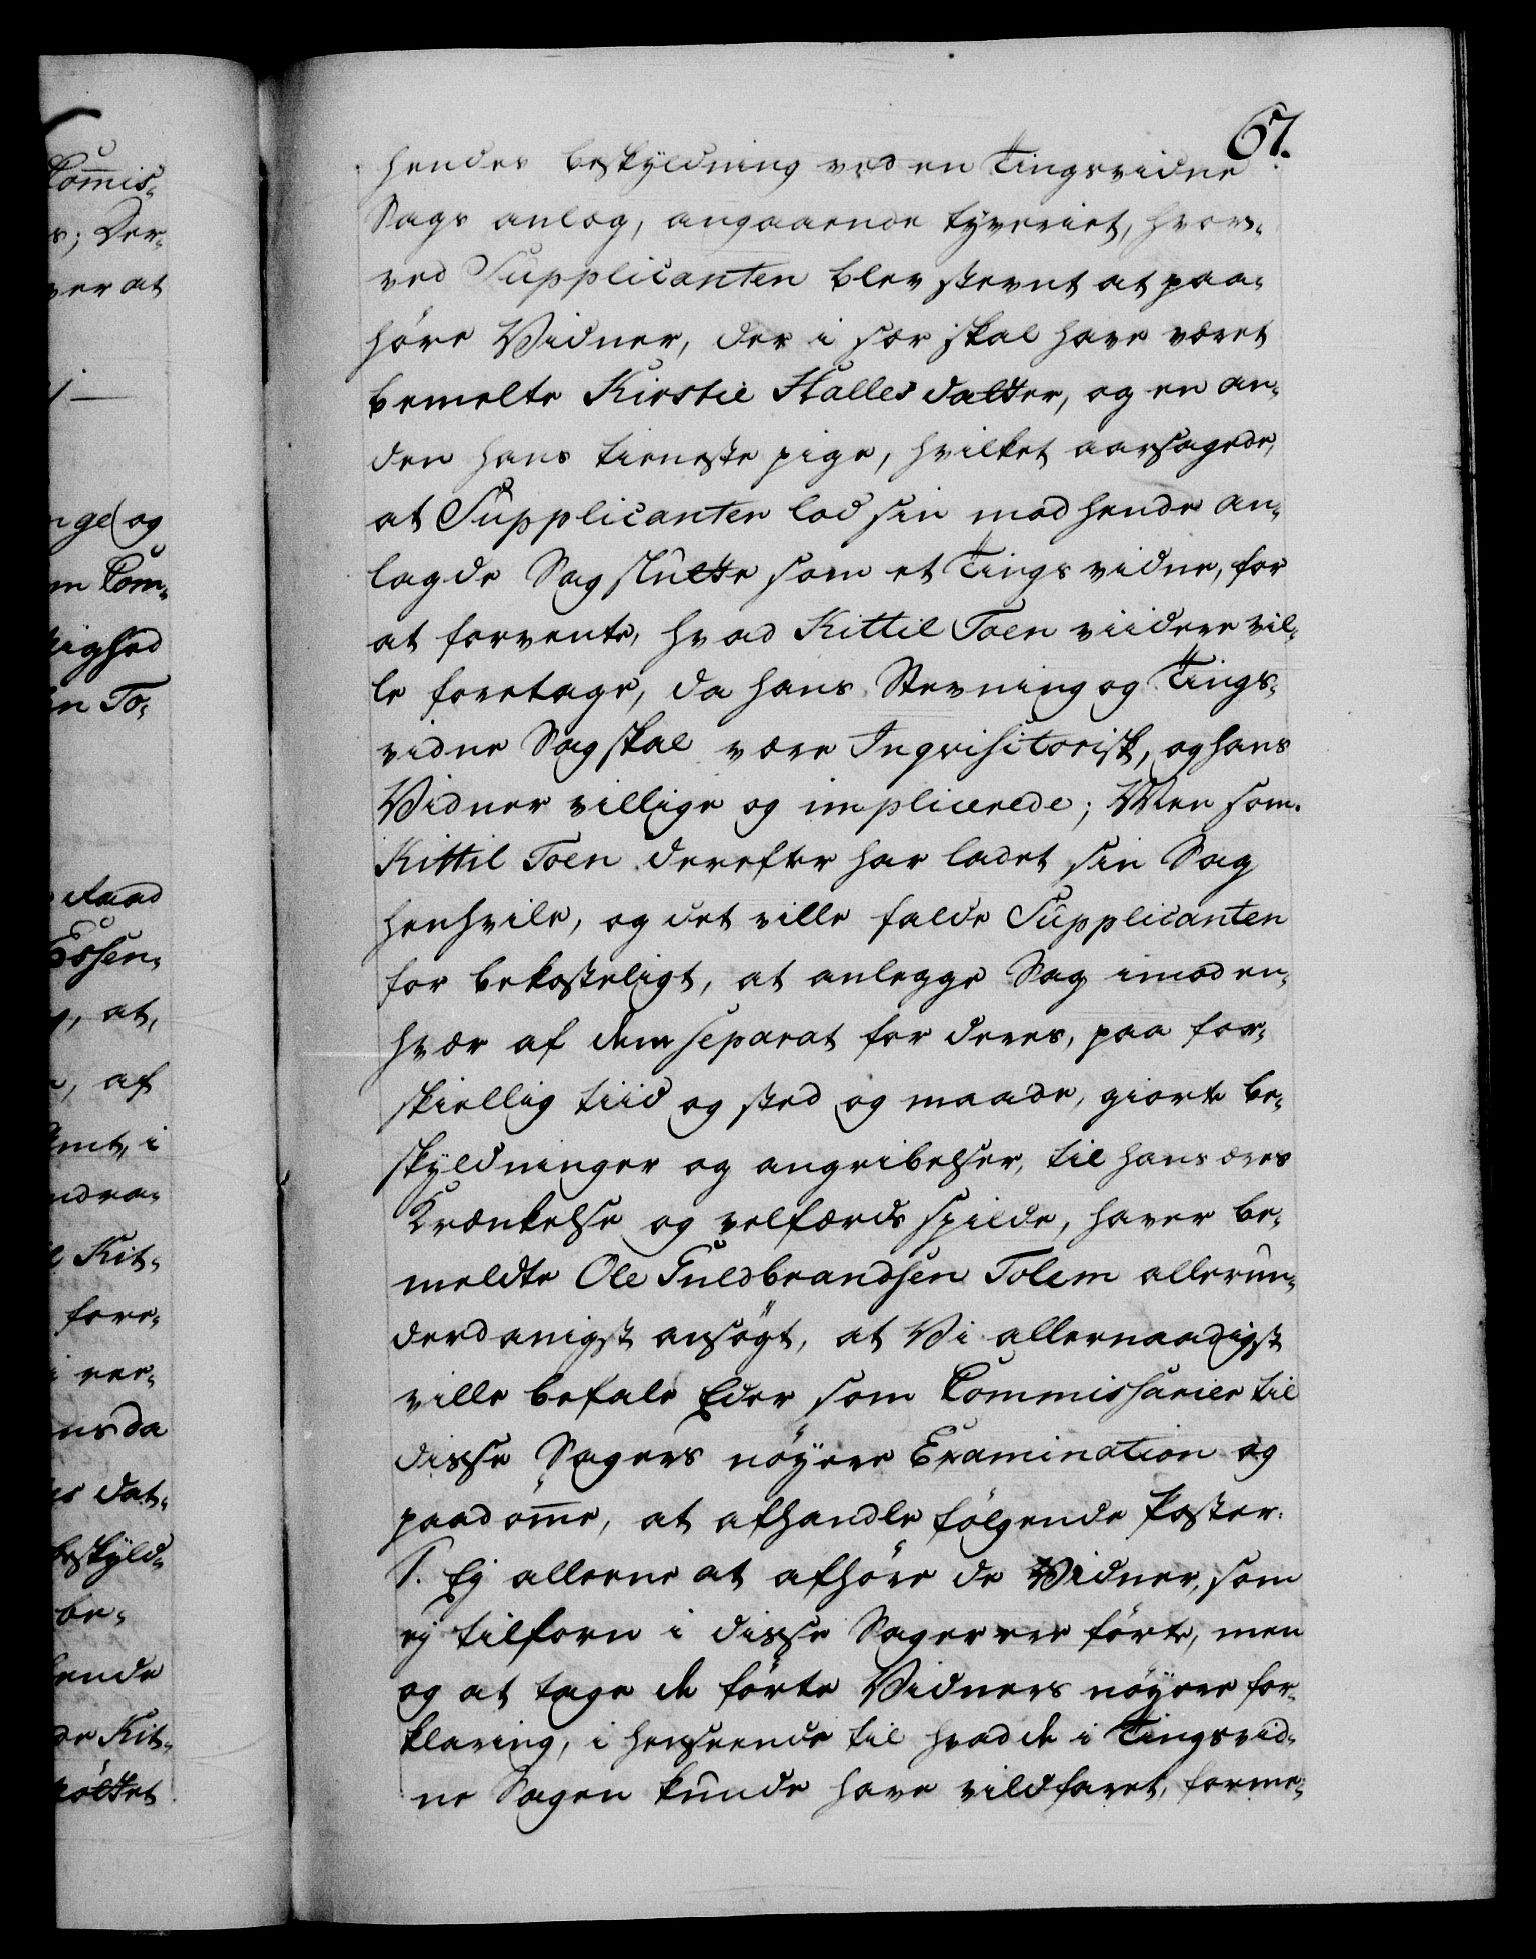 67.
hendes beskyldning ved en Tingsvidne
Sags anlæg, angaaende tyveriet, hvor-
ved Supplicanten blev stevnt at paa-
höre Vidner, der i sær skal have været
bemelte Kirstie Halles datter, og en an-
den hans tieneste pige, hvilket aarsagede,
at Supplicanten lod sin mod hende an-
lagde Sag slutte som et Tings vidne, for
at forvente, hvad Kittil Toen viidere vil-
le foretage, da hans Stevning og Tings-
vidne Sag skal være Inqvisitorisk, og hans
Vidner villige og implicerede; Men som
Kittil Toen derefter har ladet sin Sag
henhvile, og det ville falde Supplicanten
for bekosteligt, at anlegge Sag imod en-
hvær af dem separat for deres, paa for-
skiellig tiid og sted og maade, giorte be-
skyldninger og angribelser, til hans æres
Krænkelse og velfærds spilde, haver be-
meldte Ole Guldbrandsen Tolem allerun-
derdanigst ansögt, at Vi allernaadigst
ville befale Eder som Commissarier til
disse Sagers nöyere Examination og
paadömme, at afhandle fölgende Poster:
1. Ej allene at afhöre de Vidner, som
ej tilforn i disse Sager ere förte, men
og at tage de förte Vidners nöyere for-
klaring, i henseende til hvad de i Tingsvid-
ne Sagen kunde have vildfaret, forme-
Commis-
s; Der-
ver at
nge og
m Com-
n To-
Raad
Essen-
, at,
, af
Amt, i
ndra-
Kit-
fore-
i ver-
ens da
es dat-
beskyld-
be-
hende
de Kit-